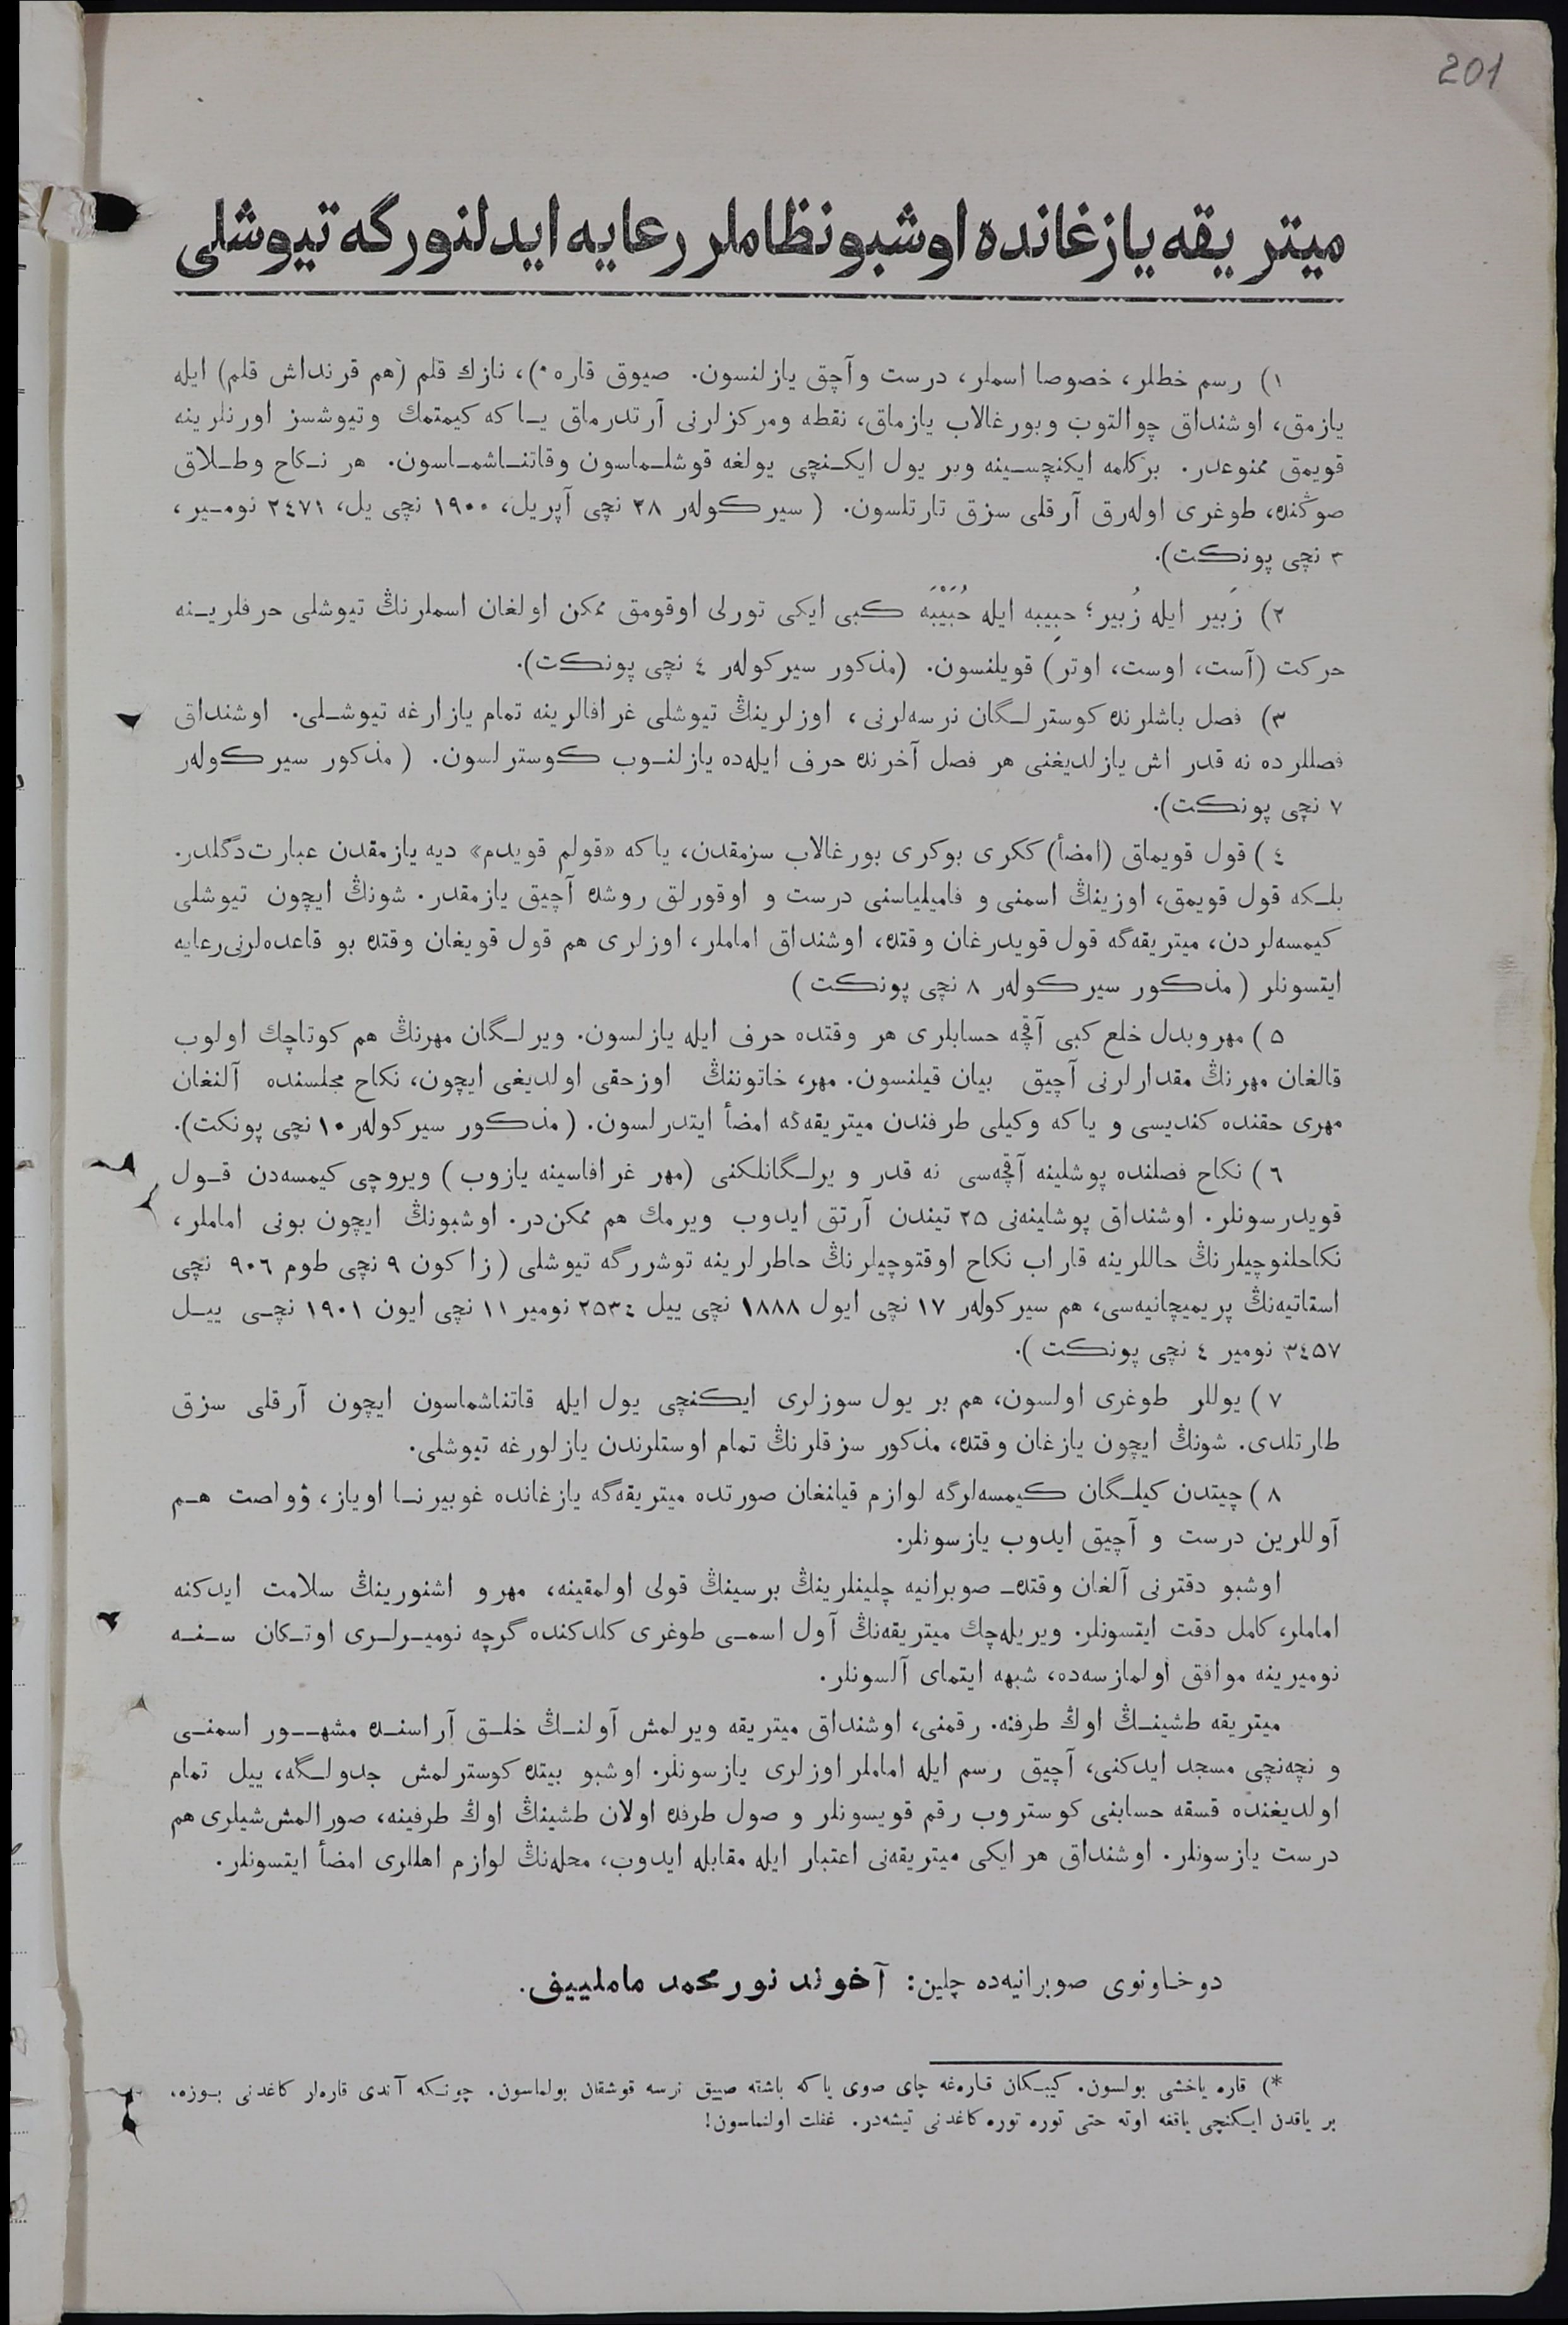 201
میتریقه یازغانده اوشبو نظاملر رعایه ایدلنورگه تیوشلی
١) رسم خطلر، خصوصا اسملر، درست وآچق یازلنسون. صیوق قاره*)، نازك قلم (هم قرنداش قلم) ایله
یازمق، اوشنداق چوالتوب وبورغالاب یازماق، نقطه ومركزلرنی آرتدرماق یـاكه كیمتمك وتیوشسز اورنلرینه
قویمق ممنوعدر. بركلمه ایكنچسـینه وبر یول ایكـنچی یولغه قوشلـماسون وقاتنـاشمـاسون. هر نـكاح وطـلاق
صوڭنده، طوغری اوله‌رق آرقلی سزق تارتلسون. (سیركوله‌ر ٢٨ نچی آپریل، ١٩٠٠ نچی یل، ٢٤٧١ نومـیر،
٣ نچی پونكت).
٢) زَبیر ایله زُبیر؛ حبِیبه ایله حُبَیْبَه كبی ایكی تورلی اوقومق ممكن اولغان اسملرنڭ تیوشلی حرفلریـنه
حركت (آست، اوست، اوتر) قویلنسون. (مذكور سیركوله‌ر ٤ نچی پونكت).
٣) فصل باشلرنده كوسترلـگان نرسه‌لرنی، اوزلرینڭ تیوشلی غرافالرینه تمام یازارغه تیوشـلی. اوشنداق
فصللرده نه قدر اش یازلدیغنی هر فصل آخرنده حرف ایله‌ده یازلنـوب كوسترلسون. (مذكور سیركوله‌ر
٧ نچی پونكت).
٤) قول قویماق (امضأ) ككری بوكری بورغالاب سزمقدن، یاكه «قولم قویدم» دیه یازمقدن عبارت دگلدر.
بلـكه قول قویمق، اوزینڭ اسمنی و فامیلیاسنی درست و اوقورلق روشده آچیق یازمقدر. شونڭ ایچون تیوشلی
كیمسه‌لردن، میتریقه‌گه قول قویدرغان وقتده، اوشنداق اماملر، اوزلری هم قول قویغان وقتده بو قاعده‌لرنی رعایه
ایتسونلر (مذكور سیركوله‌ر ٨ نچی پونكت)
٥) مهروبدل خلع كبی آقچه حسابلری هر وقتده حرف ایله یازلسون. ویرلـگان مهرنڭ هم كوتاچك اولوب
قالغان مهرنڭ مقدارلرنی آچیق بیان قیلنسون. مهر، خاتوننڭ اوزحقی اولدیغی ایچون، نكاح مجلسنده آلنغان
مهری حقنده كندیسی و یاكه وكیلی طرفندن میتریقه‌گه امضأ ایتدرلسون. (مذكور سیركوله‌ر ١٠ نچی پونكت).
٦) نكاح فصلنده پوشلینه آقچه‌سی نه قدر ویرلـگانلكنی (مهر غرافاسینه یازوب) ویروچی كیمسه‌دن قـول
قویدرسونلر. اوشنداق پوشلینه‌نی ٢٥ تیندن آرتق ایدوب ویرمك هم ممكن‌در. اوشبونڭ ایچون بونی اماملر،
نكاحلنوچیلرنڭ حاللرینه قاراب نكاح اوقتوچیلرنڭ خاطرلرینه توشررگه تیوشلی (زاكون ٩ نچی طوم ٩٠٦ نچی
استاتیه‌نڭ پریمیچانیه‌سی، هم سیركوله‌ر ١٧ نچی ایول ١٨٨٨ نچی ییل ٢٥٣٤ نومیر ١١ نچی ایون ١٩٠١ نچـی ییـل
٣٤٥٧ نومیر ٤ نچی پونكت).
٧) یوللر طوغری اولسون، هم بر یول سوزلری ایكنچی یول ایله قاتناشماسون ایچون آرقلی سزق
طارتلدی. شونڭ ایچون یازغان وقتده، مذكور سزقلرنڭ تمام اوستلرندن یازلورغه تیوشلی.
٨) چیتدن كیلـگان كیمسه‌لرگه لوازم قیلنغان صورتده میتریقه‌گه یازغانده غوبیرنـا اویاز، ۋواصت هـم
آوللرین درست و آچیق ایدوب یازسونلر.
اوشبو دفترنی آلغان وقتده صوبرانیه چلینلرینڭ برسینڭ قولی اولمقینه، مهر و اشنورینڭ سلامت ایدكنه
اماملر، كامل دقت ایتسونلر. ویریله‌چك میتریقه‌نڭ آول اسمـی طوغری كلدكنده گرچه نومیـرلـری اوتـكان سـنـه
نومیرینه موافق اولمازسه‌ده، شبهه ایتمای آلسونلر.
میتریقه طشینـڭ اوڭ طرفنه. رقمنی، اوشنداق میتریقه ویرلمش آولنـڭ خلـق آراسنـده مشهــور اسمنـی
و نچه‌نچی مسجد ایدكنی، آچیق رسم ایله اماملر اوزلری یازسونلر. اوشبو بیتده كوسترلمش جدولـگه، ییل تمام
اولدیغنده قسقه حسابنی كوستروب رقم قویسونلر و صول طرفده اولان طشینڭ اوڭ طرفینه، صورالمش شیلری هم
درست یازسونلر. اوشنداق هر ایكی میتریقه‌نی اعتبار ایله مقابله ایدوب، محله‌نڭ لوازم اهللری امضأ ایتسونلر.
دوخاونوی صوبرانیه‌ده چلین: آخوند نورمحمد ماملییف.
*) قاره یاخشی بولسون. كیبـكان قاره‌غه چای صوی یاكه باشته صییق نرسه قوشقان بولماسون. چونـكه آندی قاره‌لر كاغدنی بـوزه،
بر یاقدن ایـكنچی یاقغه اوته حتی توره توره كاغدنی تیشه‌در. غفلت اولنماسون!